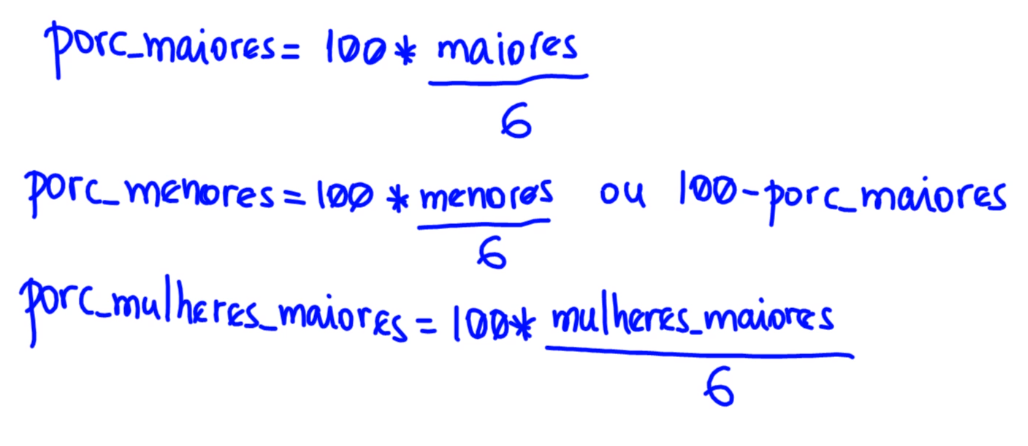 porc_maiores = 100 * maiores
6
porc_menores = 100 * menores ou 100-porc_maiores
6
porc_mulheres_maiores = 100* mulheres_maiores
6